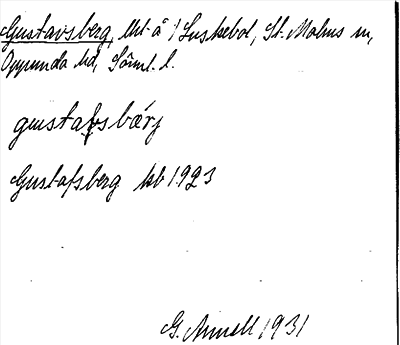 Gustavsberg, lht å 1 Lustebol, St. Malms sn,
Oppunda hd, Söml. l.
gustafsbærj
Gustafsberg kb 1923
G. Annell 1931